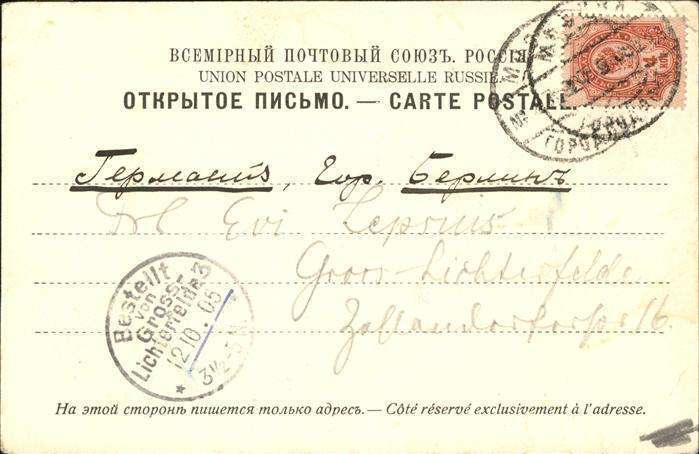 ВСЕМІРНЫЙ ПОЧТОВЫЙ СОЮЗЪ. РОССІЯ.
UNION POSTALE UNIVERSELLE RUSSIE.
ОТКРЫТОЕ ПИСЬМО. — CARTE POSTALE.
МОСКВА
ГОРОД
Германія, Гор. Берлинъ
Frl Evi Lepsius
Gross-Lichterfelde
16
Bestellt
von
Gross-
Lichterfelde 3
12 10. 05
3½-5 N
На этой сторонѣ пишется только адресъ. — Côté réservé exclusivement à l'adresse.